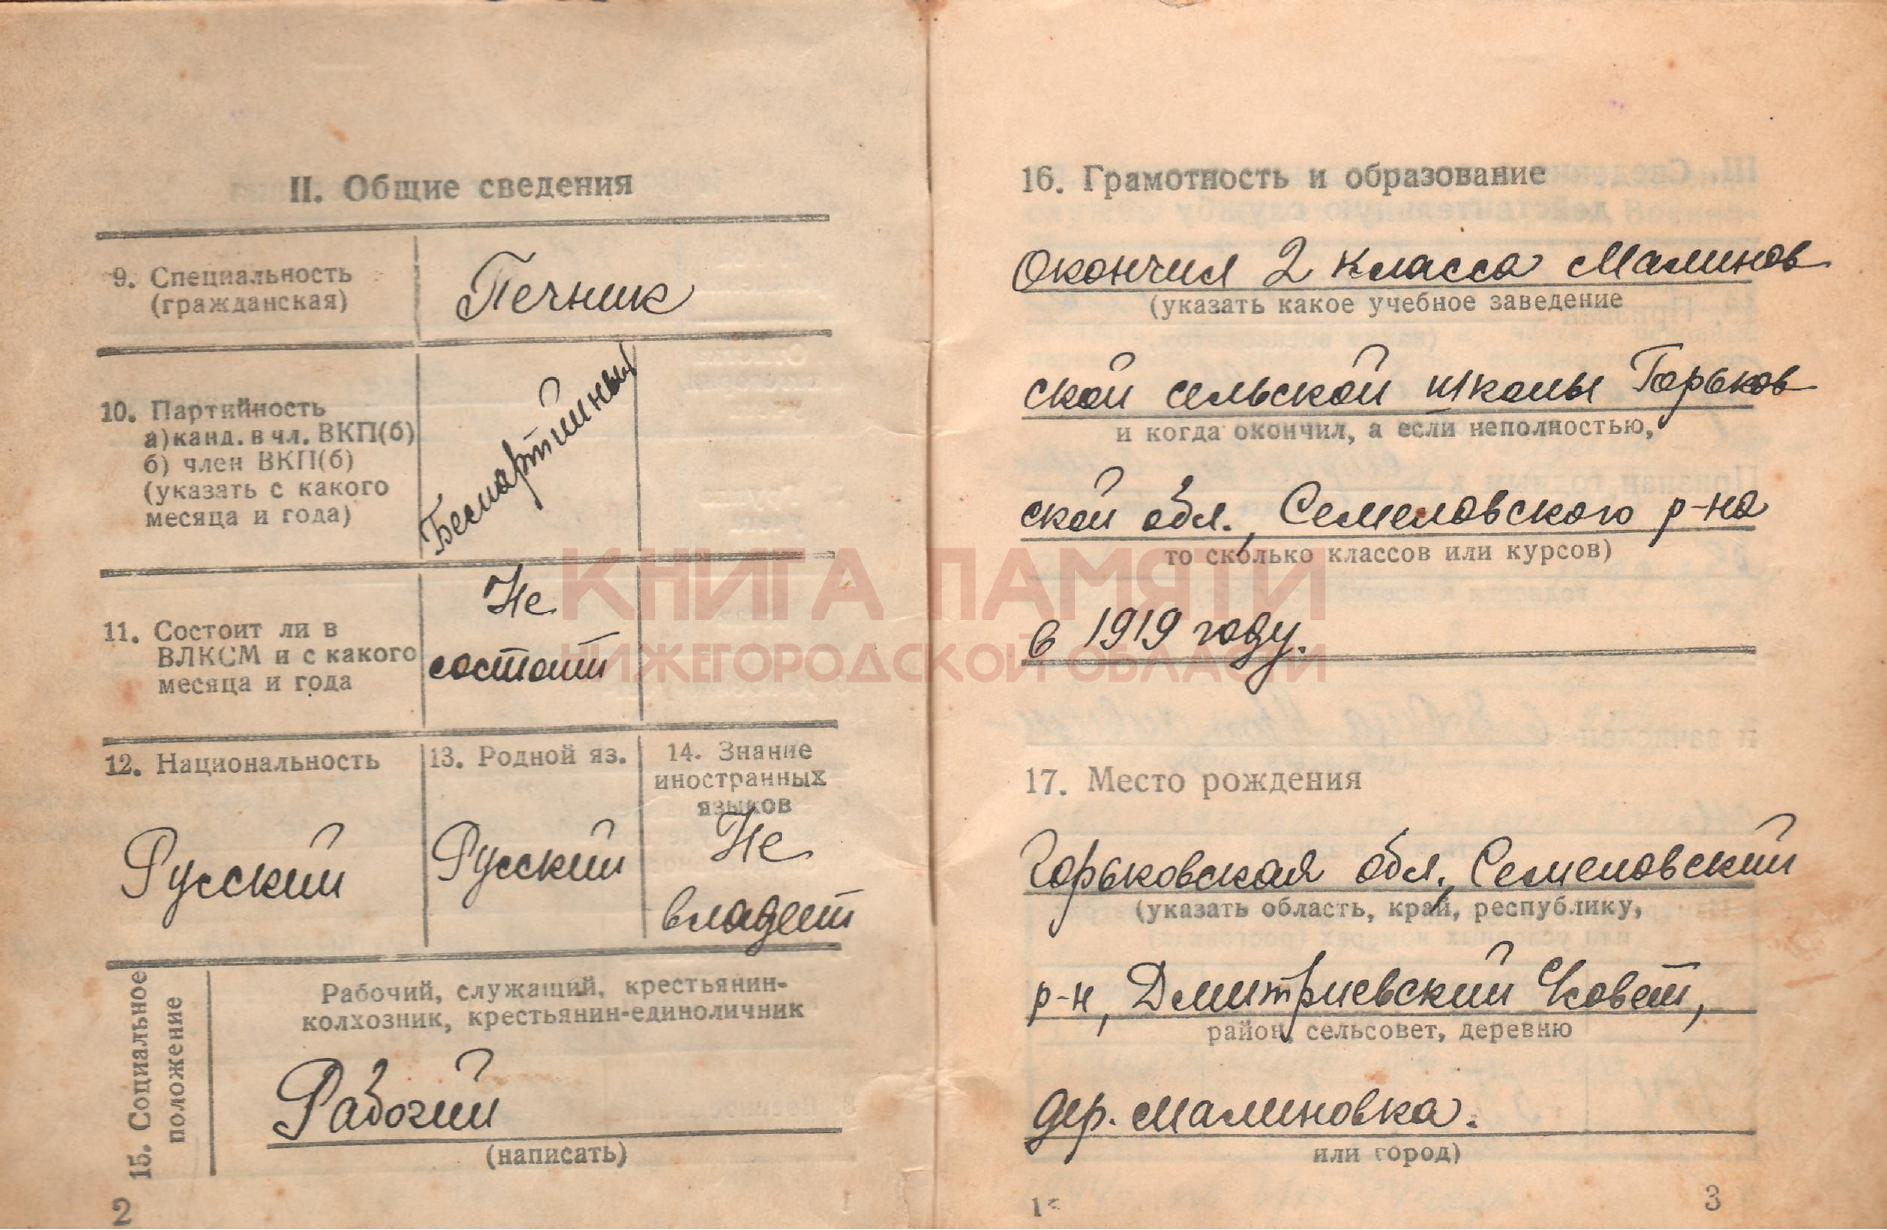 II. Общие сведения
9. Специальность
(гражданская)
Печник
10. Партийность
а) канд. в чл. ВКП(б)
б) член ВКП(б)
(указать с какого
месяца и года)
Беспартийный
11. Состоит ли в
ВЛКСМ и с какого
месяца и года
Не
состоит
12. Национальность
Русский
13. Родной яз.
Русский
14. Знание
иностранных
языков
Не
владеет
15. Социальное
положение
Рабочий, служащий, крестьянин-
колхозник, крестьянин-единоличник
Рабочий
(написать)
2
16. Грамотность и образование
Окончил 2 класса Малинов
(указать какое учебное заведение
ской сельской школы Горьков
и когда окончил, а если неполностью,
ской обл., Семеновского р-на
то сколько классов или курсов)
в 1919 году.
17. Место рождения
Горьковская обл., Семеновский
(указать область, край, республику,
р-н, Дмитриевский Совет,
район, сельсовет, деревню
дер. Малиновка.
или город)
3
КНИГА ПАМЯТИ
НИЖЕГОРОДСКОЙ ОБЛАСТИ